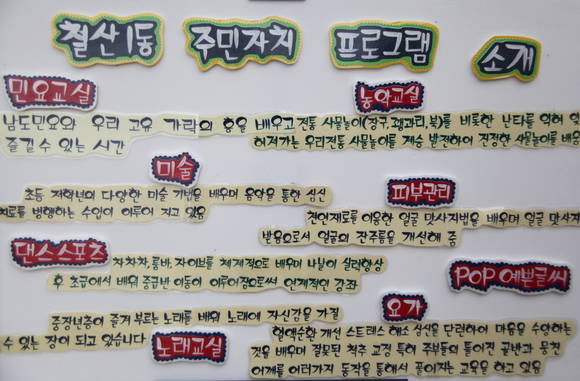 철산1동 주민자치 프로그램 소개
민요교실
남도민요와 우리 고유 가락의 흥을 배우고
즐길 수 있는 시간
농악교실
전통 사물놀이(장구,꽹과리,북)를 비롯한 난타를 익혀
허져가는 우리전통 사물놀이를 계승 발전하여 진정한 사물놀이를 배움
미술
초등 저학년의 다양한 미술 기법을 배우며 음악을 통한 심신
치료를 병행하는 수업이 이루어 지고 있음
피부관리
천연재료를 이용한 얼굴 맛사지법을 배우며 얼굴 맛사지
반응으로서 얼굴의 잔주름을 개선해 줌
댄스스포츠
차차차, 룸바, 자이브를 체계적으로 배우며 나날이 실력향상
후 초급에서 배워 중급반 이동이 이루어짐으로써 인계적인 강좌
POP 예쁜글씨
노래교실
중장년층이 즐겨 부르는 노래를 배워 노래에 자신감을 가질
수 있는 장이 되고 있습니다
요가
혈액순환 개선 스트레스 해소 심신을 단련하여 마음을 수양하는
것을 배우며 잘못된 척추 교정 특히 주부들의 틀어진 골반과 뭉친
어깨를 여러가지 동작을 통해서 풀어지는 교육을 하고 있음